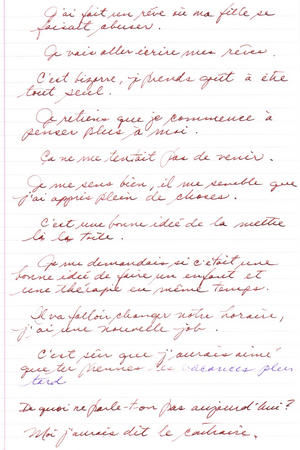 J'ai fait un rêve où ma fille se
faisait abuser.
Je vais aller écrire mes rêves.
C'est bizarre, j'prends goût à être
tout seul.
Je retiens que je commence à
penser plus à moi.
Ça ne me tentait pas de venir.
Je me sens bien, il me semble que
j'ai appris plein de choses.
C'est une bonne idée de la mettre
là la toile.
Je me demandais si c'était une
bonne idée de faire un enfant et
une thérapie en même temps.
Il va falloir changer notre horaire,
j'ai une nouvelle job.
C'est sûr que j'aurais aimé
que tu prennes les vacances plus
tard
De quoi ne parle-t-on pas aujourd'hui?
Moi j'aurais dit le contraire.